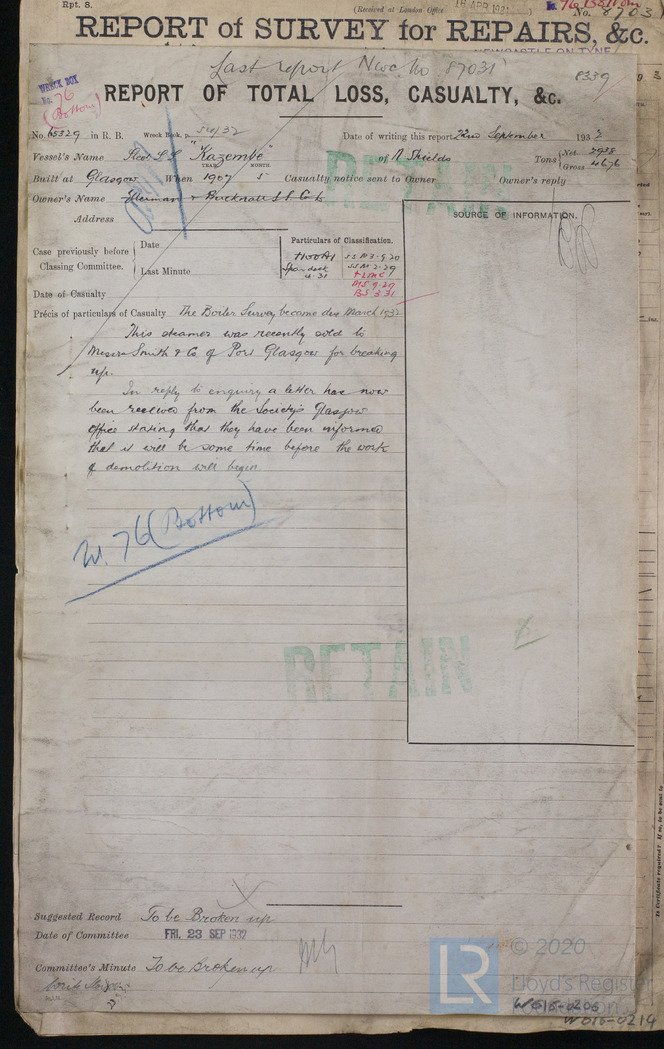 Rpt. 8.
(Received at London Office
No. 8703
REPORT of SURVEY for REPAIRS, &c.
NEWCASTLE ON TYNE
Last report Nwc. No 87031
8339
WRECK BOX
No. 76
(Bottom)
REPORT OF TOTAL LOSS, CASUALTY, &c.
No. 65329 in R. B. Wreck Book, p. 54/32 Date of writing this report 22nd September 193
Vessel's Name Steel S.S. "Kazembe" of N Shields Tons Net 2938
Gross 4676
YEAR. MONTH.
Built at Glasgow When 1907 5 Casualty notice sent to Owner Owner's reply
Owner's Name Ellerman & Bucknall S.S. Co Ld
RETAIN
Address
SOURCE OF INFORMATION.
Case previously before Classing Committee.
Date
Last Minute
Particulars of Classification.
+100A1
Spar deck
4.31
SS No 3-9.20
SS No 2-29
+LMC
MS 9.29
BS 3.31
Date of Casualty
Précis of particulars of Casualty The Boiler Survey became due March 1932
This steamer was recently sold to
Messrs Smith & Co of Port Glasgow for breaking
up.
In reply to enquiry a letter has now
been received from the Society's Glasgow
office stating that they have been informed
that it will be some time before the work
of demolition will begin
W. 76 (Bottom)
RETAIN
Suggested Record To be Broken up
Date of Committee FRI. 23 SEP 1932
Committee's Minute To be Broken up
LR
© 2020
Lloyd's Register
Foundation
W616-0206
W616-0214